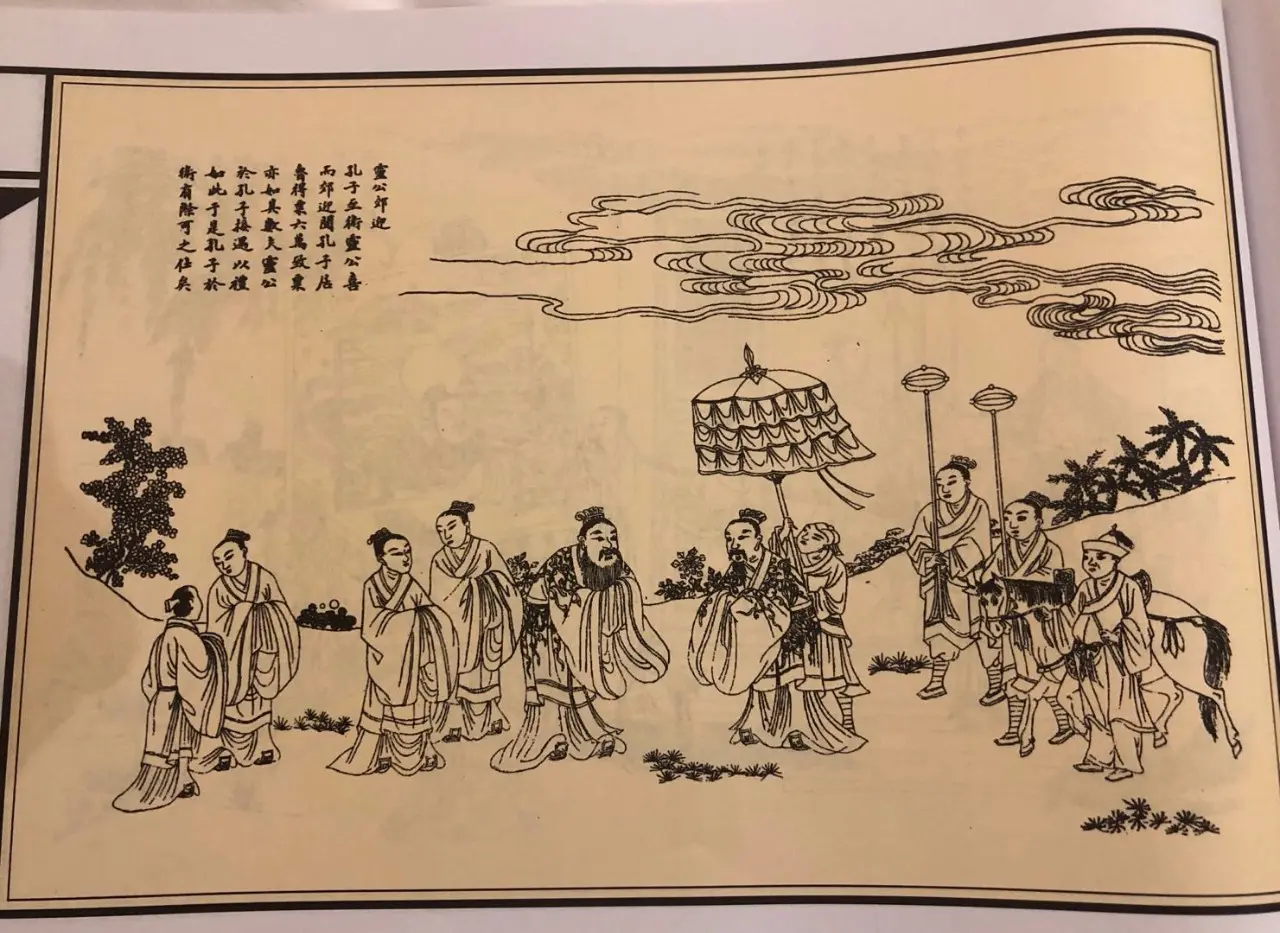 靈公郊迎
孔子至衛靈公喜
而郊迎聞孔子居
魯得粟六萬致粟
亦如其數夫靈公
於孔子接遇以禮
如此于是孔子於
衛有際可之仕矣